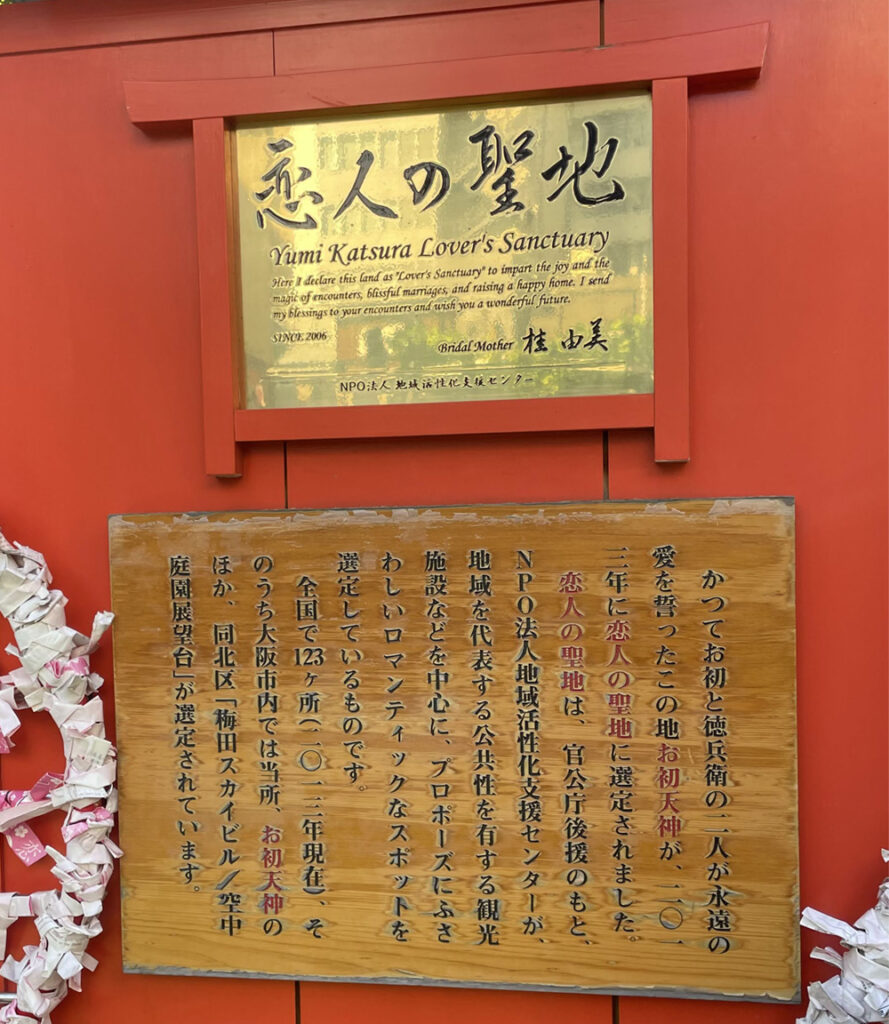 恋人の聖地
Yumi Katsura Lover's Sanctuary
Here I declare this land as "Lover's Sanctuary" to impart the joy and the
magic of encounters, blissful marriages, and raising a happy home. I send
my blessings to your encounters and wish you a wonderful future.
SINCE 2006
Bridal Mother 桂 由美
NPO法人 地域活性化支援センター
かつてお初と徳兵衛の二人が永遠の
愛を誓ったこの地お初天神が、二〇一
二年に恋人の聖地に選定されました。
恋人の聖地は、官公庁後援のもと、
NPO法人地域活性化支援センターが、
地域を代表する公共性を有する観光
施設などを中心に、プロポーズにふさ
わしいロマンティックなスポットを
選定しているものです。
全国で123ヶ所(二〇一二年現在)、そ
のうち大阪市内では当所、お初天神の
ほか、同北区「梅田スカイビル／空中
庭園展望台」が選定されています。
恋